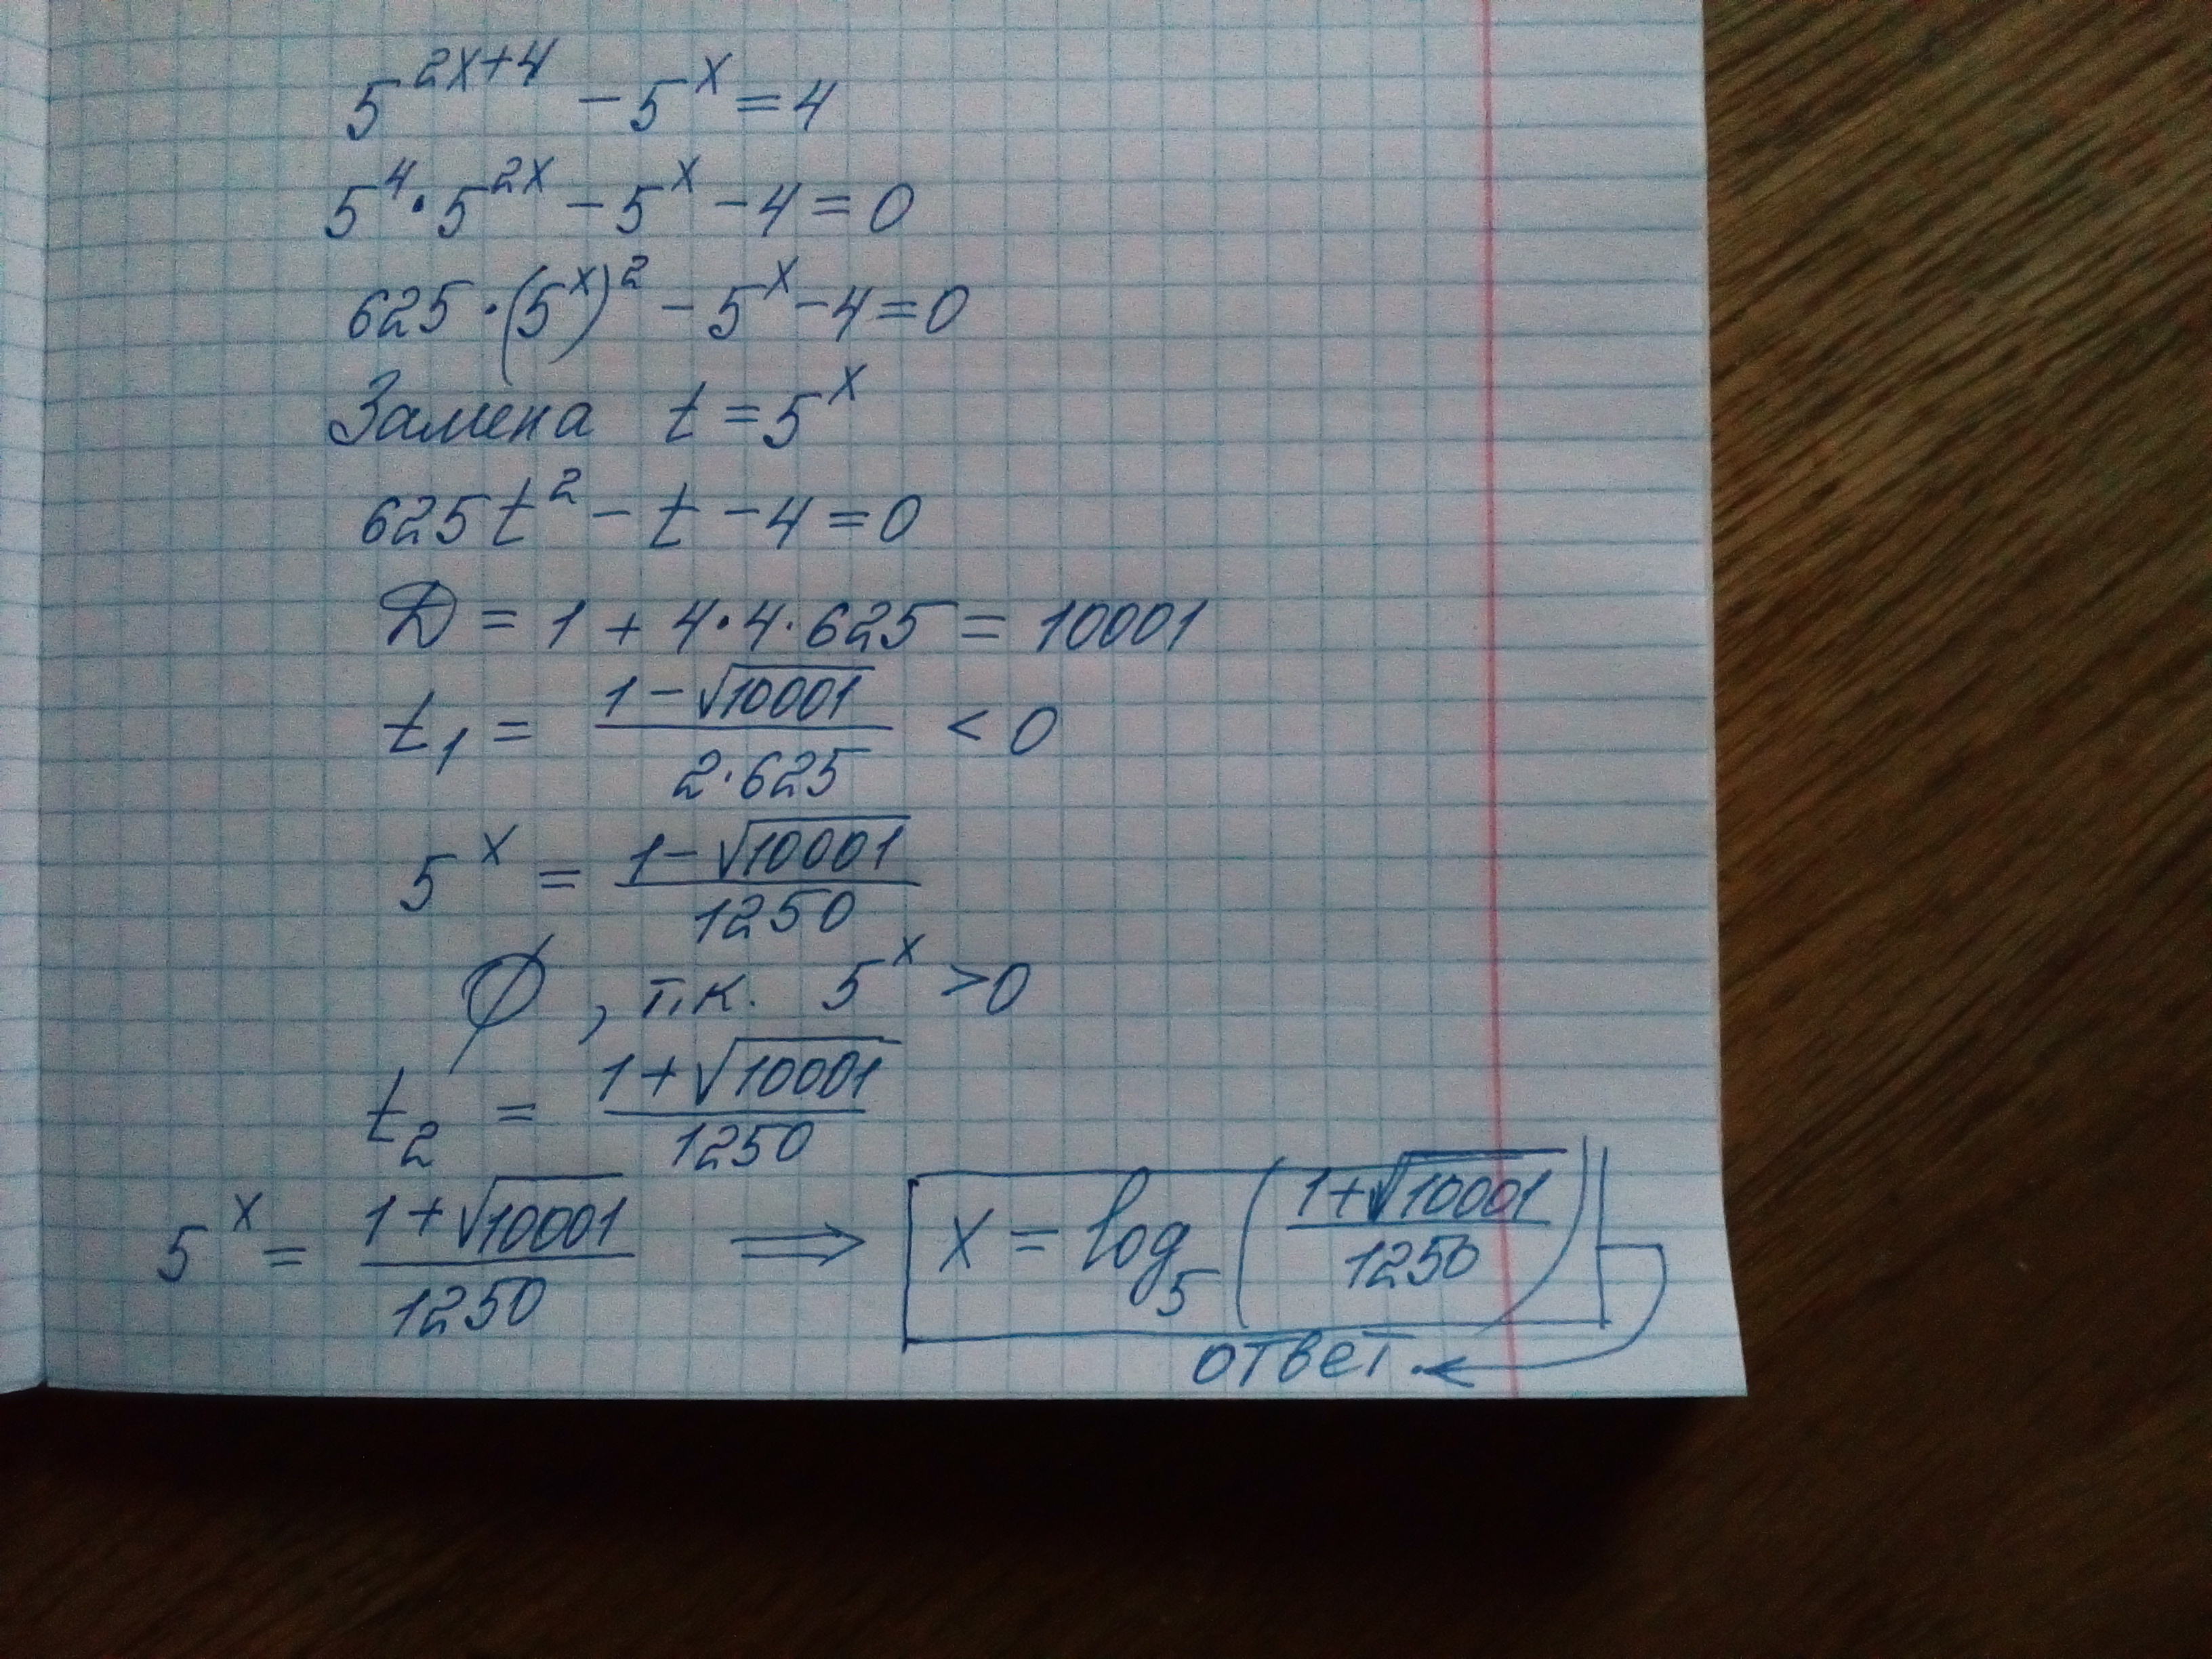 5^{2x+4} - 5^x = 4
5^4 · 5^{2x} - 5^x - 4 = 0
625 · (5^x)^2 - 5^x - 4 = 0
Замена t = 5^x
625t^2 - t - 4 = 0
D = 1 + 4·4·625 = 10001
t_1 = \frac{1-\sqrt{10001}}{2·625} < 0
5^x = \frac{1-\sqrt{10001}}{1250}
∅, т.к. 5^x > 0
t_2 = \frac{1+\sqrt{10001}}{1250}
5^x = \frac{1+\sqrt{10001}}{1250} ⟹ x = log_5 (\frac{1+\sqrt{10001}}{1250})
ответ.